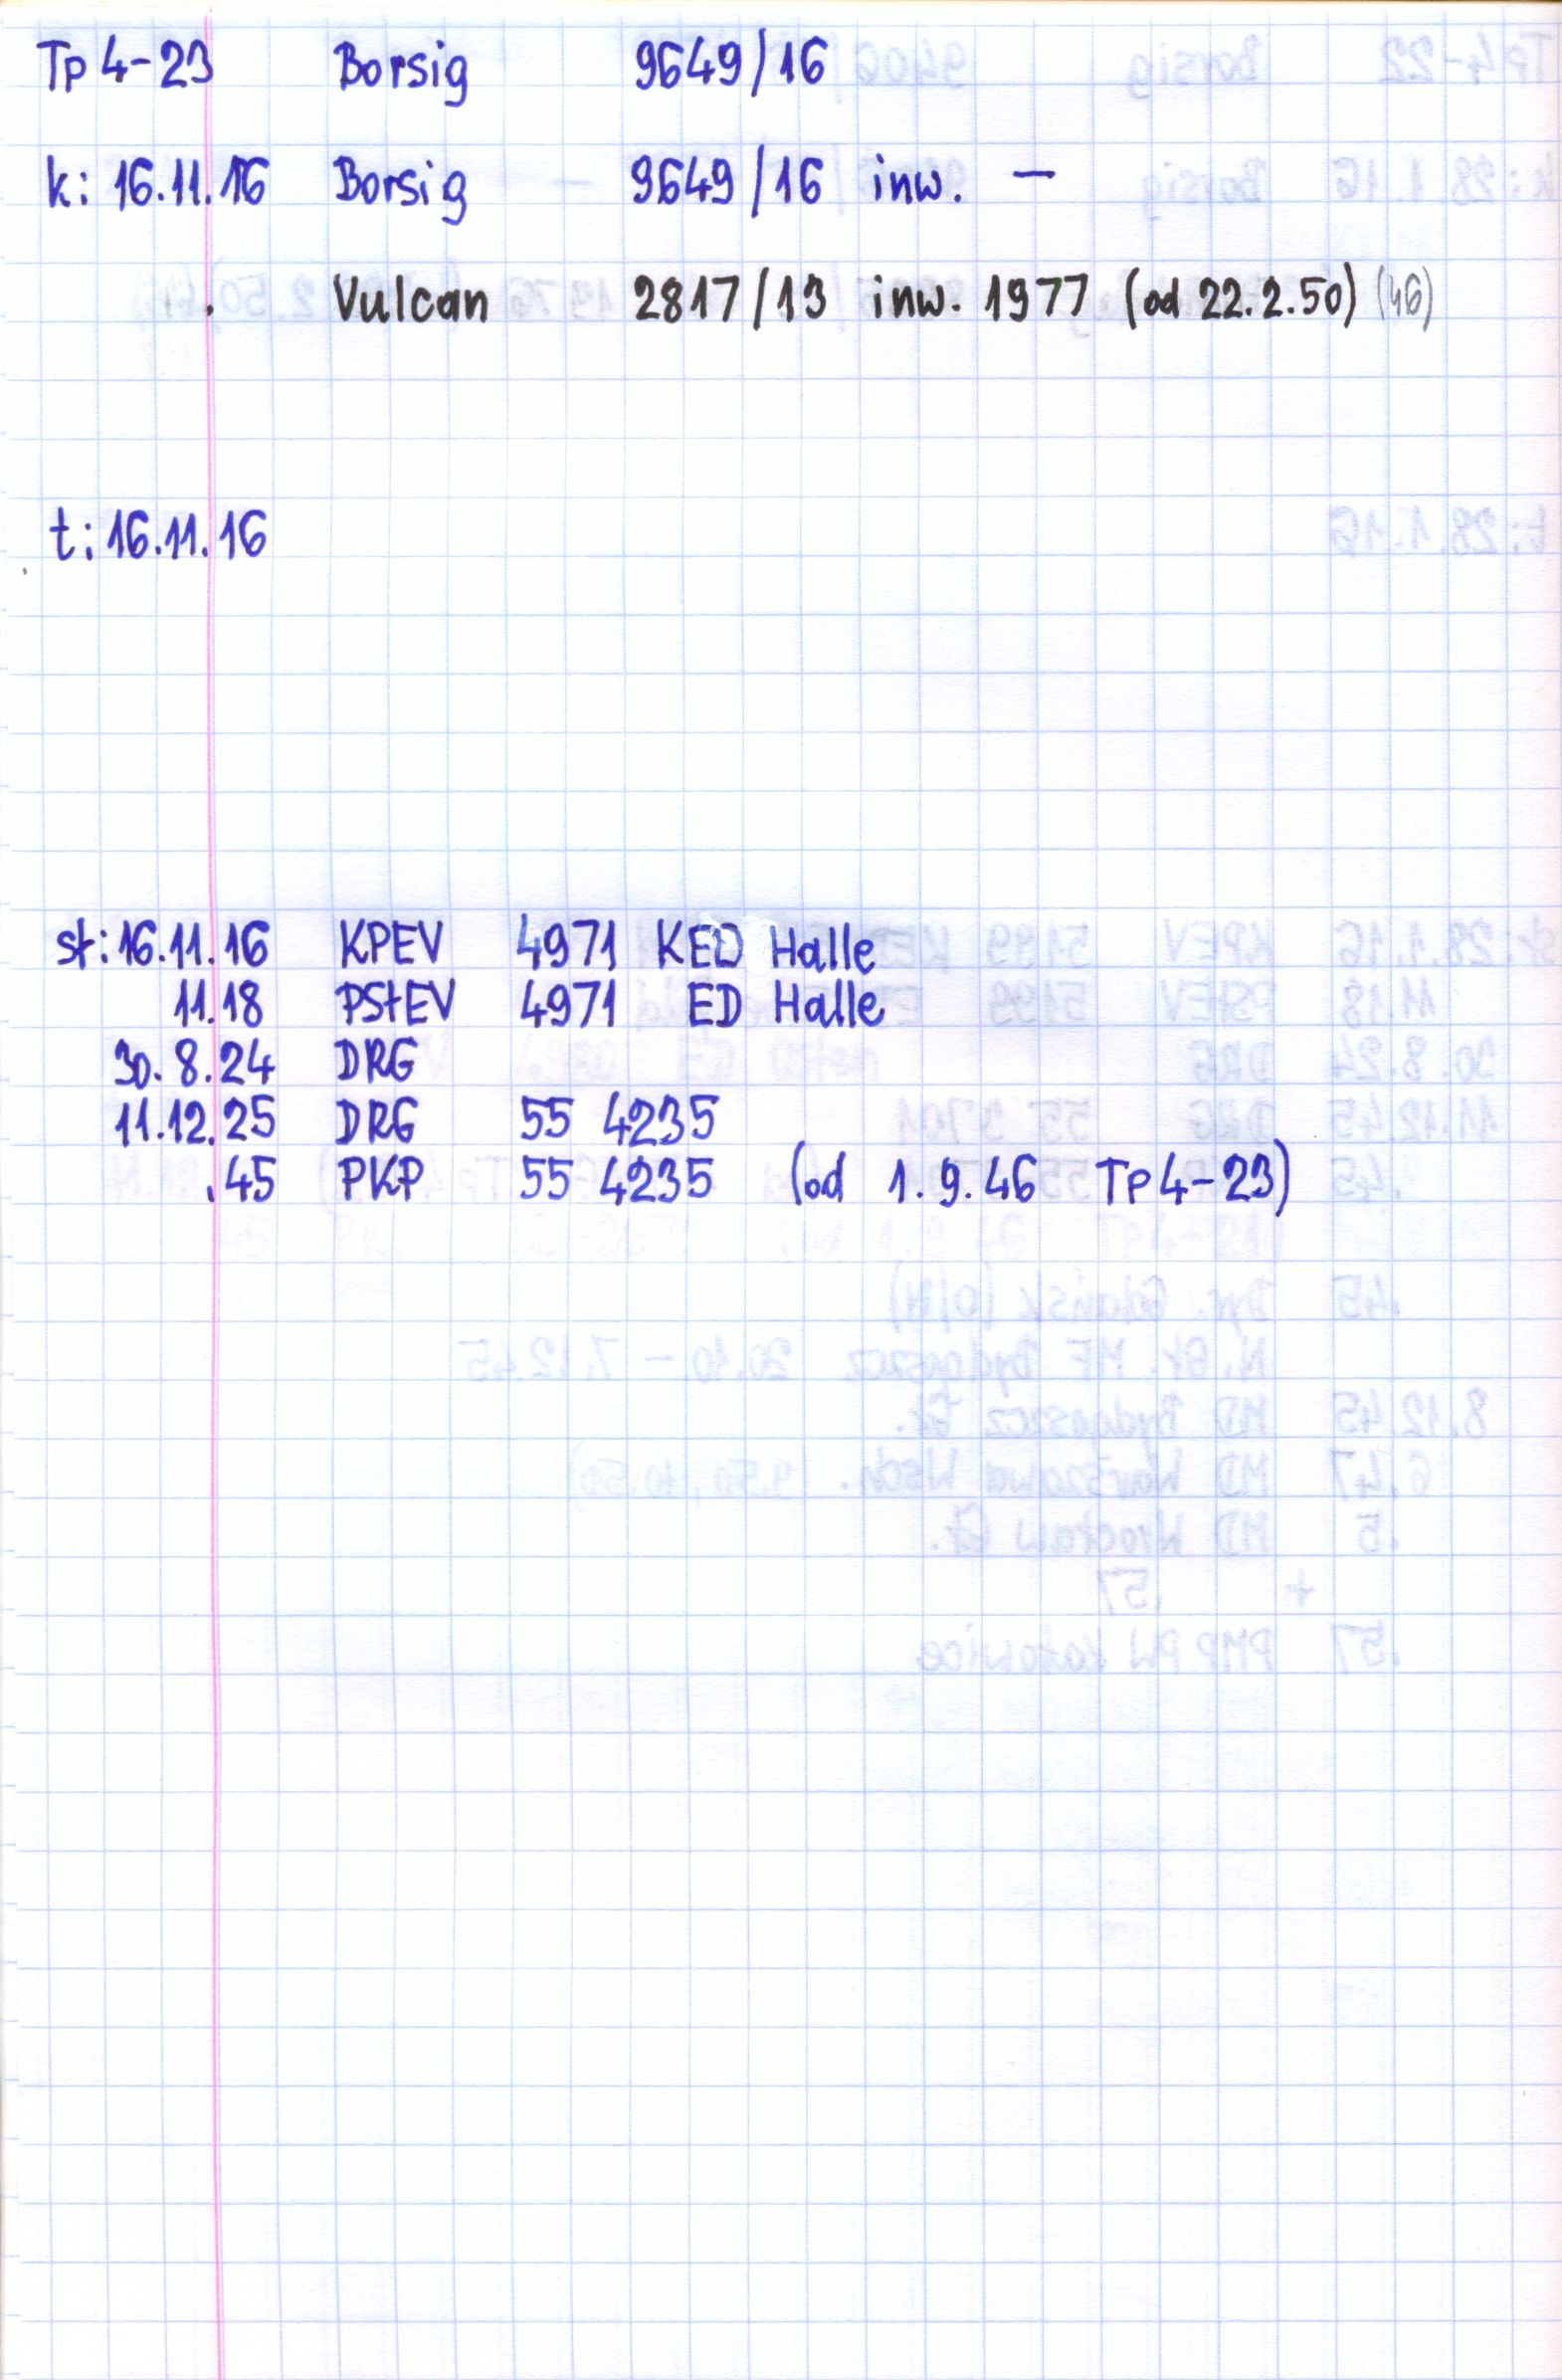 Tp 4-23 Borsig 9649/16
k: 16.11.16 Borsig 9649/16 inw. —
. Vulcan 2817/13 inw. 1977 (od 22.2.50) (46)
t: 16.11.16
st: 16.11.16 KPEV 4971 KED Halle
11.18 PStEV 4971 ED Halle
30.8.24 DRG
11.12.25 DRG 55 4235
.45 PKP 55 4235 (od 1.9.46 Tp 4-23)